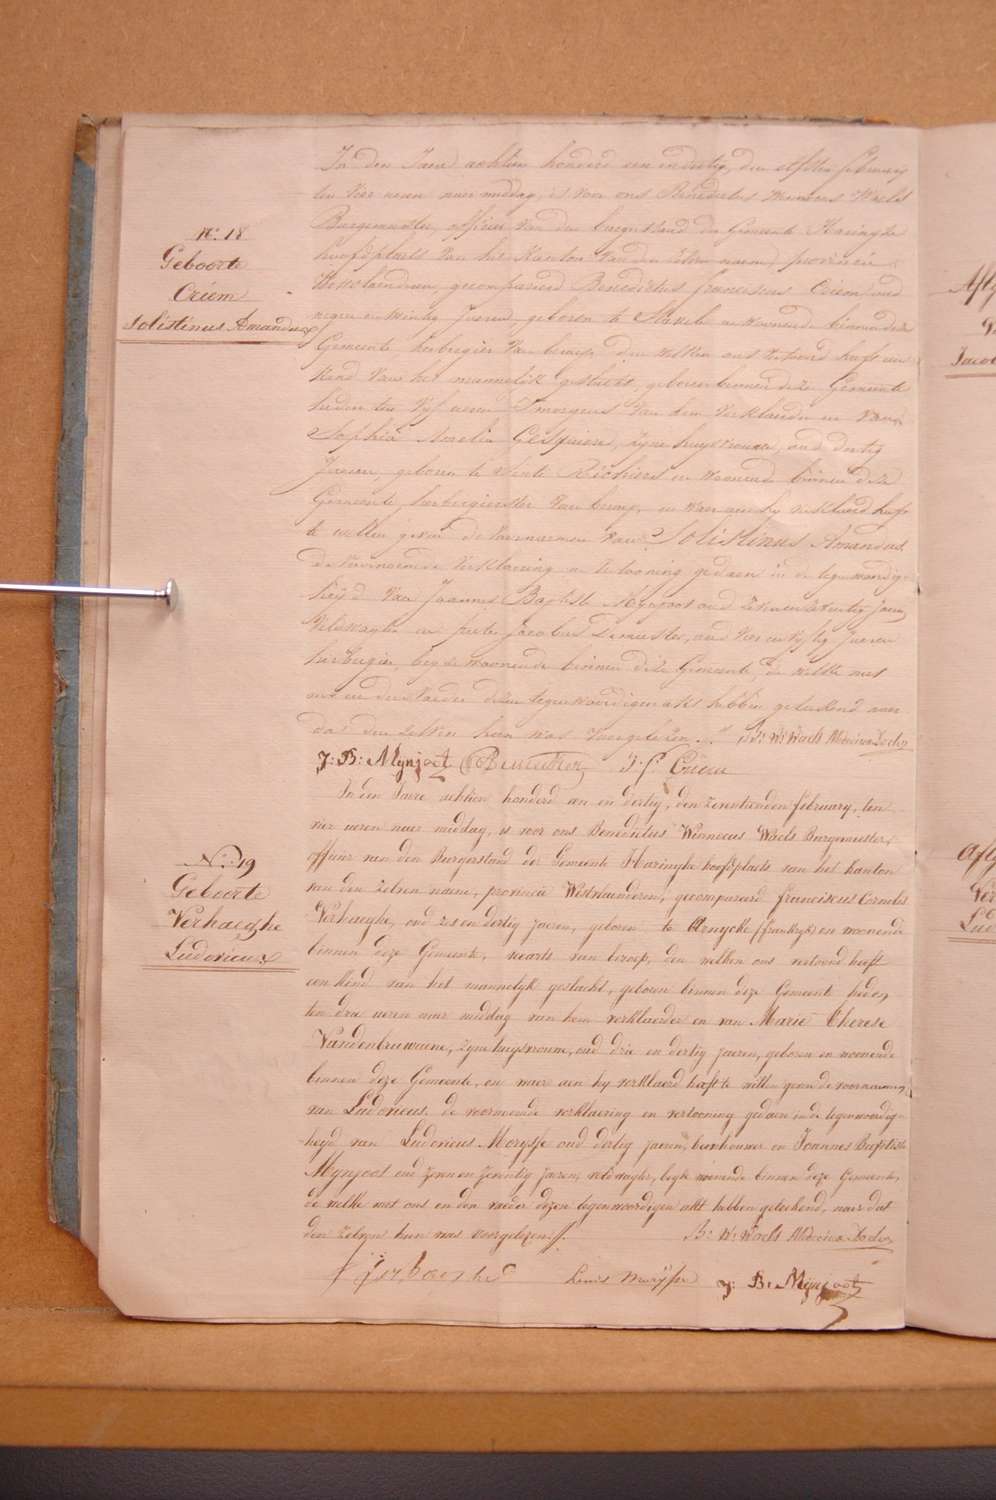 N.º 18
Geboorte
Criem
Solistinus Amandus
In den Jaere achtien honderd een en dertig, den february
ten vier ueren naer middag, is voor ons Benedictus Winnocus Waels
Burgemeester, officier van den burgerstand der Gemeente Haringhe
hoofdplaets van het Kanton van den zelven naeme, provincie
Westvlaenderen, gecompareerd Benedictus franciscus Criem, oud
negen en twintig Jaeren, geboren te Stavele en woonende binnen deze
Gemeente, herbergier van beroep, den welken ons vertoond heeft een
Kind van het mannelijk geslacht, geboren binnen deze Gemeente
heden ten vyf ueren S'morgens van hem Verklaerder en van
Sophia Amelia zyne huysvrouwe, oud dertig
Jaeren, geboren te en woonende binnen deze
Gemeente, herbergierster van beroep, en waer aen hy verklaerd heeft
te willen geven de voornaemen van Solistinus Amandus.
de voornoemde Verklaering en vertooning gedaen in de tegenwoordig-
heyd van Joannes Baptiste Mynjoot oud zeven en zeventig Jaeren,
Veldwagter en pieter Jacobus Demeester, oud vier en vyftig Jaeren
herbergier, beyde woonende binnen deze Gemeente, de welke met
ons en den Vaeder dezen tegenwoordigen akt hebben geteekend naer
dat den zelven hun was voorgelezen. B: W: Waels Medicinae Doctor
J: B: Mynjoot P J Demeester B. f. Criem
N.º 19
Geboorte
Verhaeghe
Ludovicus
In den Jaere achtien honderd een en dertig, den zeventienden february, ten
vier ueren naer middag, is voor ons Benedictus Winnocus Waels Burgemeester,
officier van den Burgerstand der Gemeente Haringhe hoofdplaets van het kanton
van den zelven naeme, provincie Westvlaenderen, gecompareerd franciscus Cornelis
Verhaeghe, oud zes en dertig jaeren, geboren te Arnycke (frankryk) en woonende
binnen deze Gemeente, van beroep, den welken ons vertoond heeft
een kind van het mannelyk geslacht, geboren binnen deze Gemeente heden
ten drie ueren naer middag van hem verklaerder en van Marie Therese
Vandenbruwaene, zyne huysvrouwe, oud drie en dertig jaeren, geboren en woonende
binnen deze Gemeente, en waer aen hy verklaerd heeft te willen geven de voornaemen
van Ludovicus. de voornoemde verklaering en vertooning gedaen in de tegenwoordig-
heyd van Ludovicus Morysse oud dertig jaeren, landbouwer en Joannes Baptiste
Mynjoot oud zeven en zeventig jaeren, veldwagter, beyde woonende binnen deze Gemeente,
de welke met ons en den vaeder dezen tegenwoordigen akt hebben geteekend, naer dat
den zelven hun was voorgelezen. B: W: Waels Medicinae Doctor
Louis Morysse J: B: Mynjoot